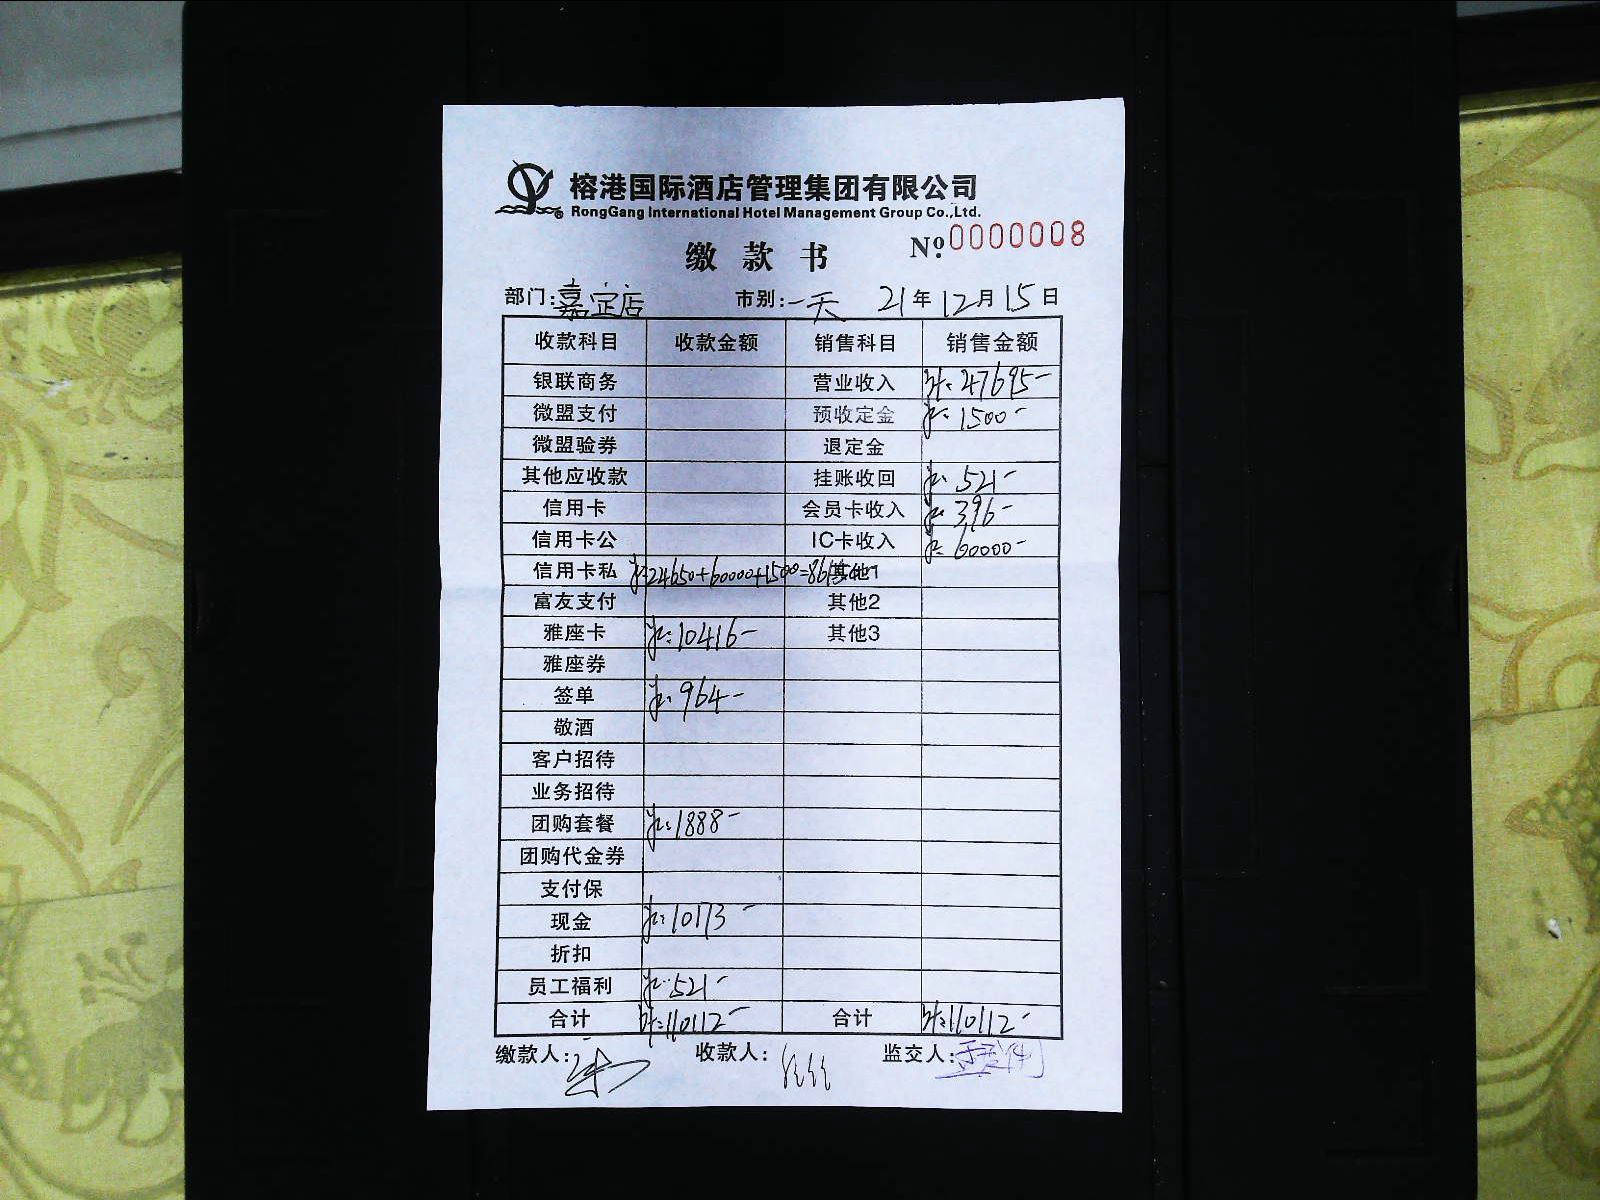 榕港国际酒店管理集团有限公司
RongGang International Hotel Management Group Co.,Ltd.
缴款书 Nº:0000008
部门:嘉定店 市别:一天 21年12月15日
收款科目 收款金额 销售科目 销售金额
银联商务 营业收入 计:47695-
微盟支付 预收定金 记:1500-
微盟验券 退定金
其他应收款 挂账收回 记:521-
信用卡 会员卡收入 记:396-
信用卡公 IC卡收入 记:60000-
信用卡私 记:24650+60000+1500=86150- 其他1
富友支付 其他2
雅座卡 记:10416- 其他3
雅座券
签单 记:964-
敬酒
客户招待
业务招待
团购套餐 记:1888-
团购代金券
支付保
现金 记:10173-
折扣
员工福利 记:521-
合计 计:110112- 合计 计:110112-
缴款人: 收款人: 监交人: